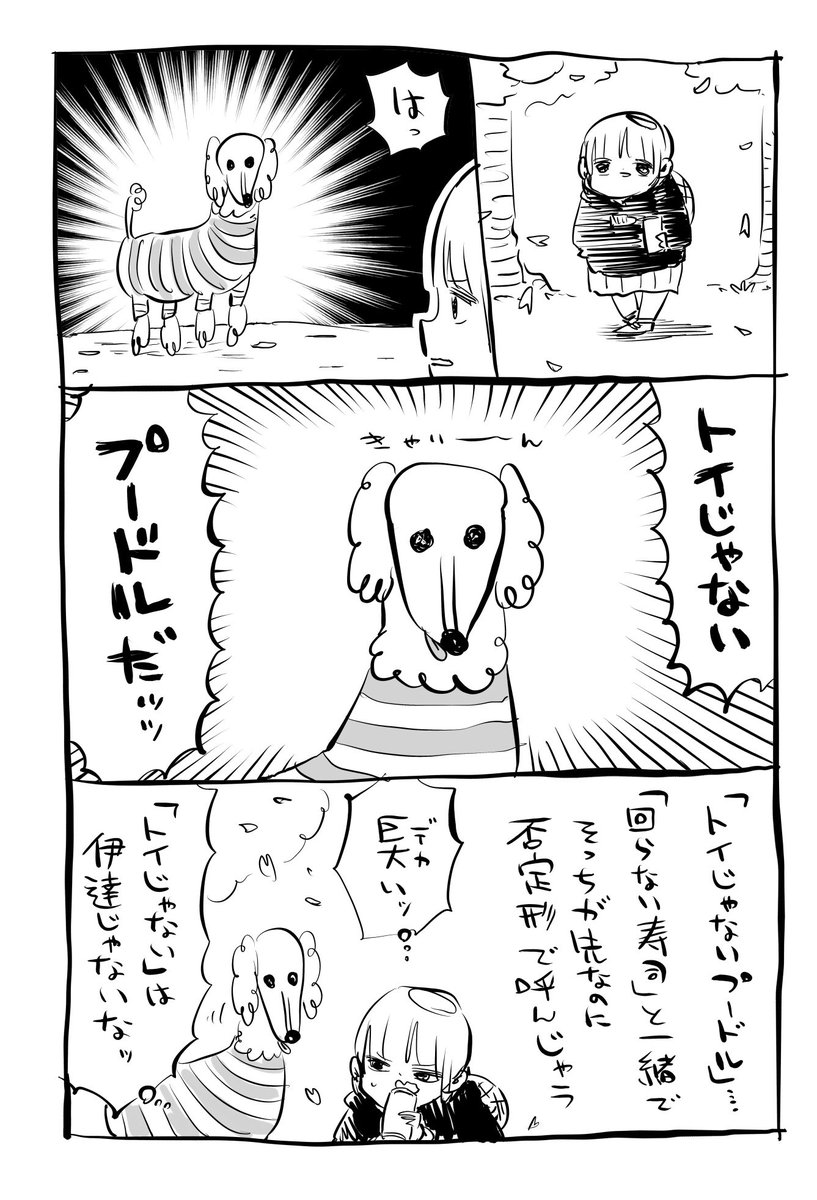 はっ
トイじゃない
きゃいーーん
プードルだッッ
「トイじゃないプードル」…
「回らない寿司」と一緒で
そっちが先なのに
否定形で呼んじゃう
デカ
巨大いッ…
「トイじゃない」は
伊達じゃないなッ